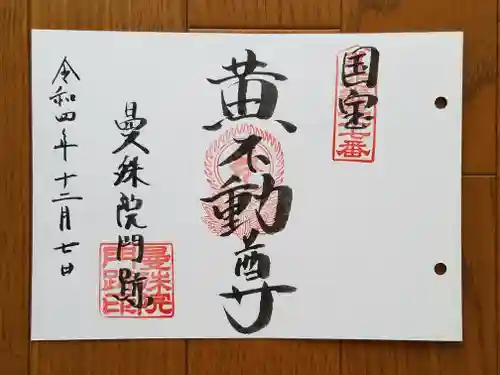 国宝
黄不動尊
曼殊院門跡
令和四年十二月七日
七番
曼殊院
門跡印